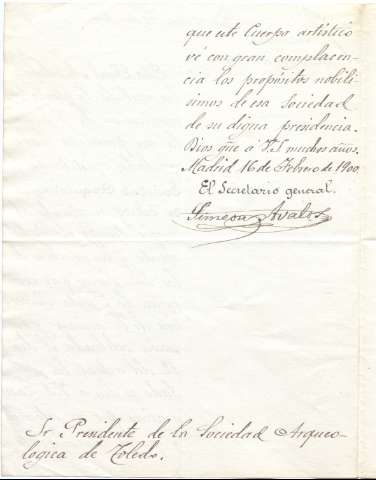 que este Cuerpo artístico
vé con gran complacen-
cia los propósitos nobilí-
simos de esa Sociedad
de su digna presidencia.
Dios gue. á V.S. muchos años.
Madrid 16 de Febrero de 1900.
El Secretario general.
Simeon Avalos
Sr Presidente de la Sociedad Arqueo-
lógica de Toledo.